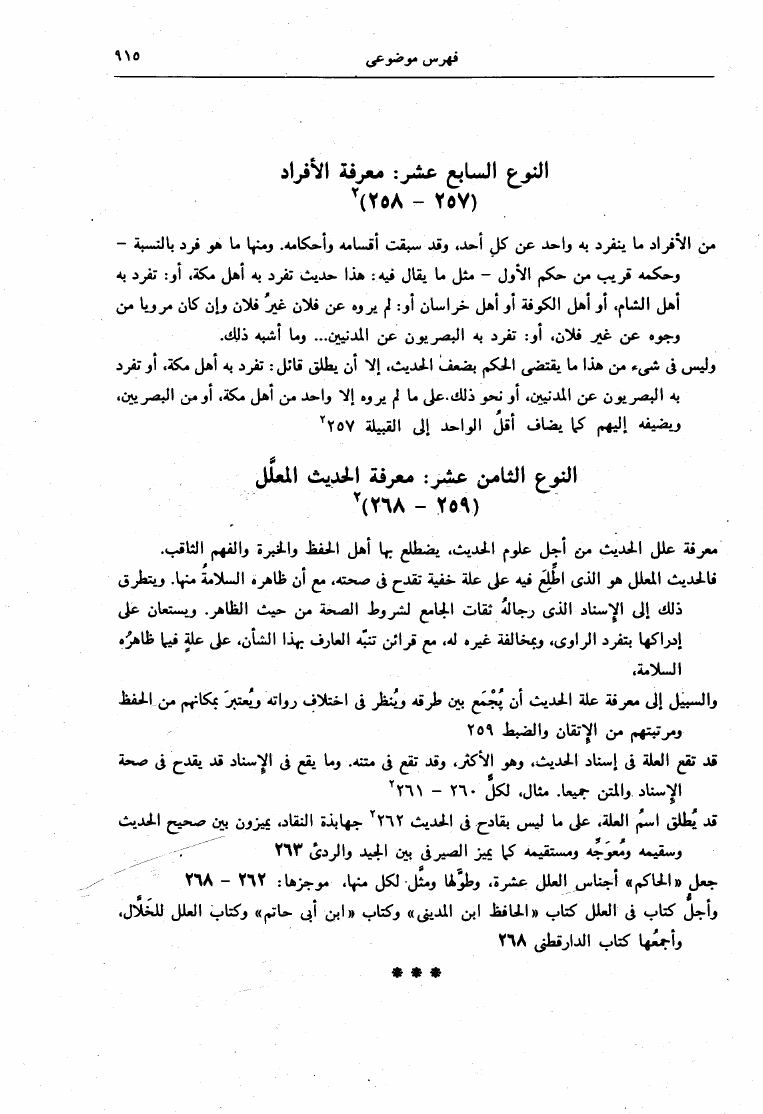 فهرس موضوعى
٩١٥
النوع السابع عشر: معرفة الأفراد
(٢٥٧ – ٢٥٨)٢
من الأفراد ما ينفرد به واحد عن كل أحد، وقد سبقت أقسامه وأحكامه. ومنها ما هو فرد بالنسبة –
وحكمه قريب من حكم الأول – مثل ما يقال فيه: هذا حديث تفرد به أهل مكة، أو: تفرد به
أهل الشام، أو أهل الكوفة أو أهل خراسان أو: لم يروه عن فلان غيرُ فلان وإن كان مرويا من
وجوه عن غير فلان، أو: تفرد به البصريون عن المدنيين... وما أشبه ذلك.
وليس فى شىء من هذا ما يقتضى الحكم بضعف الحديث، إلا أن يطلق قائل: تفرد به أهل مكة، أو تفرد
به البصريون عن المدنيين، أو نحو ذلك. على ما لم يروه إلا واحد من أهل مكة، أو من البصريين،
ويضيفه إليهم كما يضاف أقلُ الواحد إلى القبيلة ٢٥٧٢
النوع الثامن عشر: معرفة الحديث المعلَّل
(٢٥٩ – ٢٦٨)٢
معرفة علل الحديث من أجل علوم الحديث، يضطلع بها أهل الحفظ والخبرة والفهم الثاقب.
فالحديث المعلل هو الذى اطُّلِعَ فيه على علة خفية تقدح فى صحته، مع أن ظاهره السلامةُ منها. ويتطرق
ذلك إلى الإسناد الذى رجالهُ ثقات الجامع لشروط الصحة من حيث الظاهر. ويستعان على
إدراكها بتفرد الراوى، وبمخالفة غيره له، مع قرائن تنبّه العارف بهذا الشأن، على علةٍ فيما ظاهرُه
السلامة،
والسبيل إلى معرفة علة الحديث أن يُجْمَع بين طرقه ويُنظر فى اختلاف رواته ويُعتبرَ بمكانهم من الحفظ
ومرتبتهم من الإتقان والضبط ٢٥٩
قد تقع العلة فى إسناد الحديث، وهو الأكثر، وقد تقع فى متنه. وما يقع فى الإسناد قد يقدح فى صحة
الإسناد والمتن جميعا. مثال، لكلٍّ ٢٦٠ – ٢٦١٢
قد يُطلق اسمُ العلة، على ما ليس بقادح فى الحديث ٢٦٢٢ جهابذة النقاد، يميزون بين صحيح الحديث
وسقيمه ومُعوَجِّه ومستقيمه كما يميز الصيرفى بين الجيد والردئ ٢٦٣
جعل «الحاكم» أجناس العلل عشرة، وطوَّلها ومثَّل لكل منها، موجزها: ٢٦٢ – ٢٦٨
وأجلُّ كتاب فى العلل كتاب «الحافظ ابن المدينى» وكتاب «ابن أبى حاتم» وكتاب العلل للخَلاَّل،
وأجمعُها كتاب الدارقطنى ٢٦٨
***